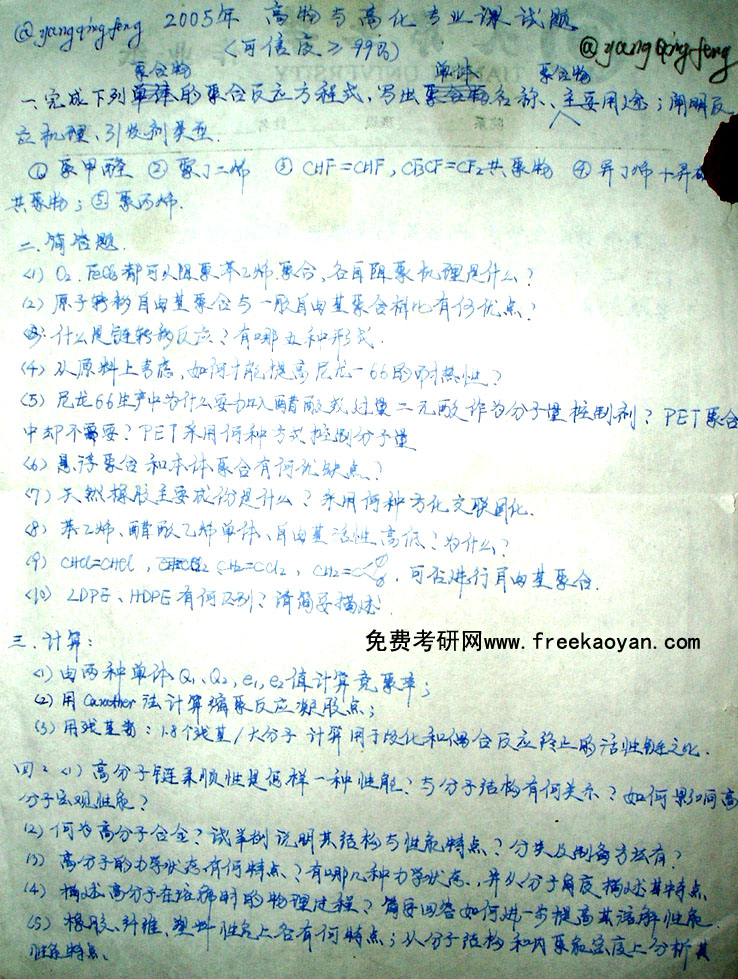 @yangqingfeng 2005年 高物与高化专业课试题
(可信度≥99%) @yangqingfeng
聚合物 单体 聚合物
一.完成下列单体的聚合反应方程式,写出聚合物名称、主要用途;阐明反
应机理、引发剂类型.
① 聚甲醛 ② 聚丁二烯 ③ CHF=CHF, CF=CF2共聚物 ④ 异丁烯+异
共聚物; ⑤ 聚丙烯.
二.简答题.
(1) O2, FeCl3都可以阻聚苯乙烯聚合,各自阻聚机理是什么?
(2) 原子转移自由基聚合与一般自由基聚合相比有何优点?
(3) 什么是链转移反应?有哪五种形式.
(4) 从原料上考虑,如何才能提高尼龙-66的耐热性?
(5) 尼龙66生产中为什么要加入醋酸或过量二元酸作为分子量控制剂? PET聚合
中却不需要? PET采用何种方式控制分子量
(6) 悬浮聚合和本体聚合有何优缺点?
(7) 天然橡胶主要成份是什么?采用何种方化交联固化.
(8) 苯乙烯、醋酸乙烯单体、自由基活性高低?为什么?
(9) CHCl=CHCl, CH2=CCl2, CH2=C 可否进行自由基聚合.
(10) LDPE、HDPE有何区别?请简要描述.
三.计算:
免费考研网www.freekaoyan.com
(1) 由两种单体Q1、Q2, e1, e2值计算竞聚率;
(2) 用Carother法计算缩聚反应凝胶点;
(3) 用残基数: 1.8个残基/大分子 计算用于歧化和偶合反应终止的活性链之比.
四: (1) 高分子链柔顺性是怎样一种性能?与分子结构有何关系?如何影响高
分子宏观性能?
(2) 何为高分子合金?试举例说明其结构与性能特点?分类及制备方法有?
(3) 高分子的力学状态有何特点?有哪几种力学状态,并从分子角度描述其特点
(4) 描述高分子在溶解时的物理过程?简要回答如何进一步提高其溶解性能.
(5) 橡胶、纤维、塑料性能上各有何特点;从分子结构和内聚能密度上分析其
性能特点.